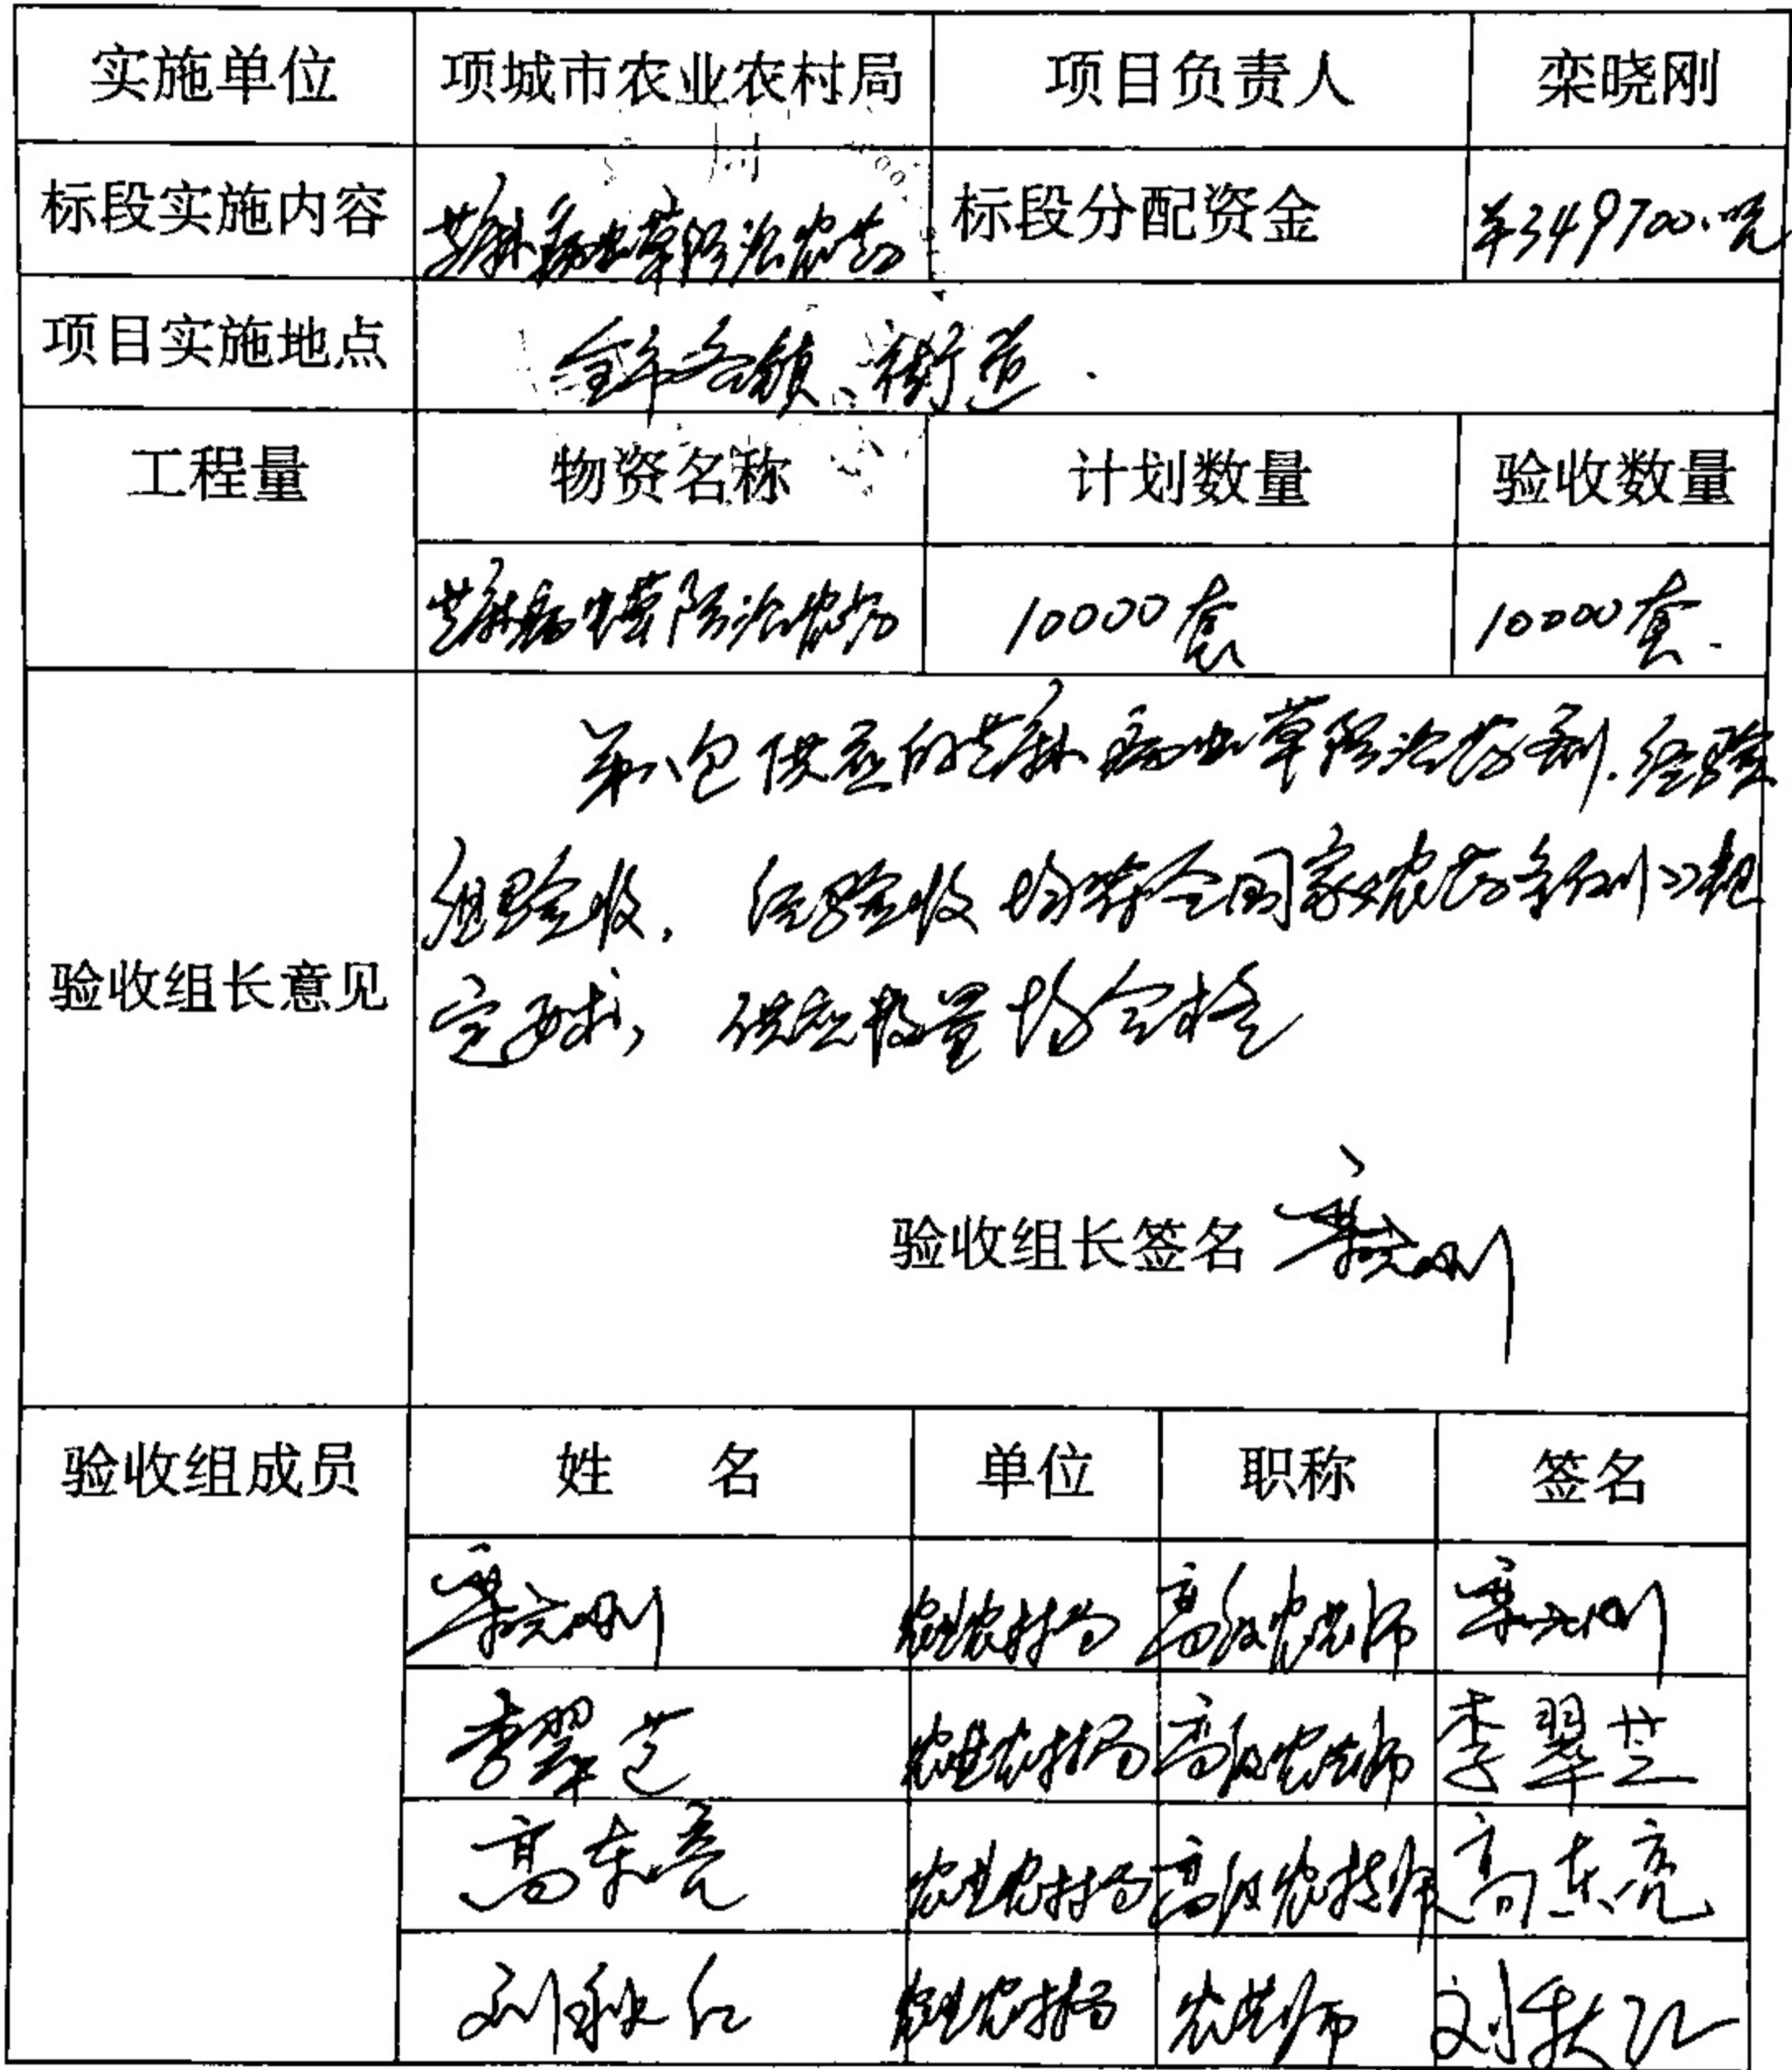 实施单位 项城市农业农村局 项目负责人 栾晓刚
标段实施内容 芝麻病虫草防治农药 标段分配资金 ¥349700.元
项目实施地点 全市各镇、街道.
工程量 物资名称 计划数量 验收数量
芝麻病虫草防治农药 10000套 10000套.
第八包供应的芝麻病虫草防治药剂.经验
组验收, 经验收均符合国家农药条例规
定要求, 供应数量均合格
验收组长意见
验收组长签名 栾晓刚
验收组成员 姓 名 单位 职称 签名
栾晓刚 农业农村局 高级农艺师 栾晓刚
李翠芝 农业农村局 高级农艺师 李翠芝
高东亮 农业农村局 高级农技师 高东亮
刘秋红 农业农村局 农艺师 刘秋红